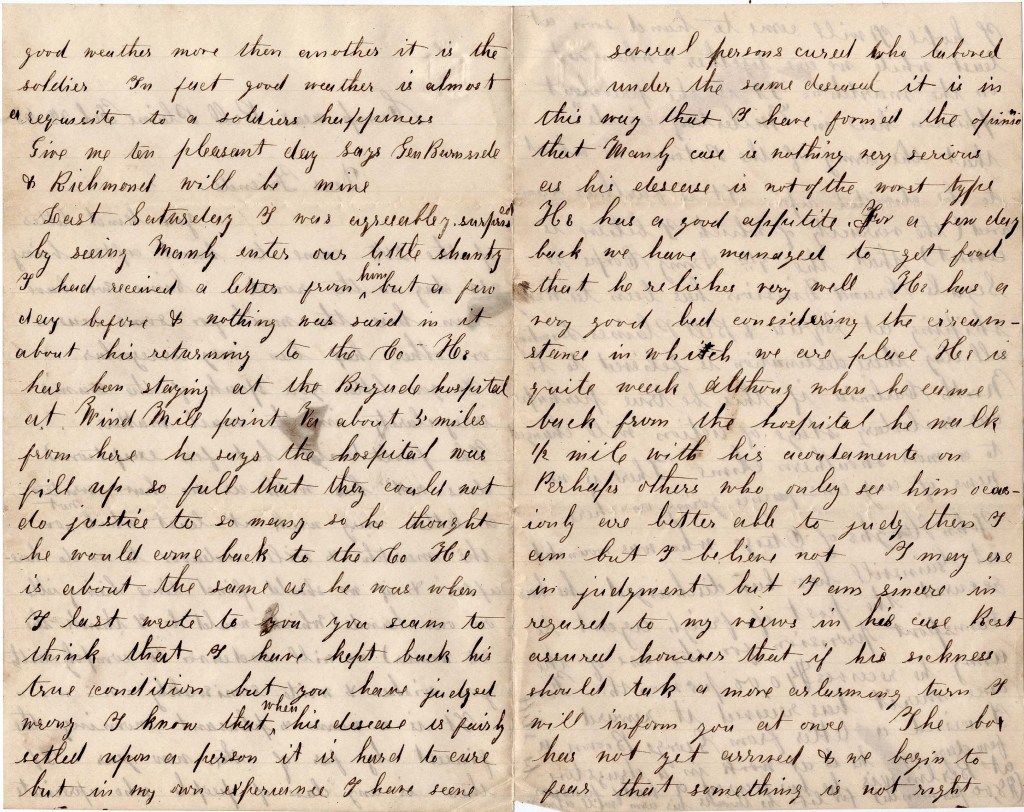 good weather more then another it is the
soldier In fact good weather is almost
a requssite to a soldiers happiness
Give me ten pleasant day says Gen Burnside
& Richmond will be mine
Last Saturday I was agreeabley surprised
by seeing Manly enter our little shanty
I had received a letter from him but a few
day before & nothing was said in it
about his returning to the Co He
has been staying at the Brigade hospital
at Wind Mill point Va about 5 miles
from here he says the hospital was
fill up so full that they could not
do justice to so many so he thought
he would come back to the Co He
is about the same as he was when
I last wrote to you you seam to
think that I have kept back his
true condition but you have judged
wrong I know that when his desease is fairly
setled upon a person it is hard to cure
but in my own experiance I have seene
several persons cured who labored
under the same deseased it is in
this way that I have formed the opinion
that Manly case is nothing very serious
as his desease is not of the worst type
He has a good appitite. For a few day
back we have managed to get food
that he relishes very well He has a
very good bed considering the circum-
stance in which we are place He is
quite weeck althoug when he came
back from the hospital he walk
1/2 mile with his acoutaments on
Perhaps others who onley see him ocas-
ionly are better able to judg then I
am but I believe not I may ere
in judgment but I am sincere in
regard to my views in his case Rest
assured however that if his sickness
should tak a more arlarming turn I
will inform you at once The box
has not yet arrived & we begin to
fear that something is not right